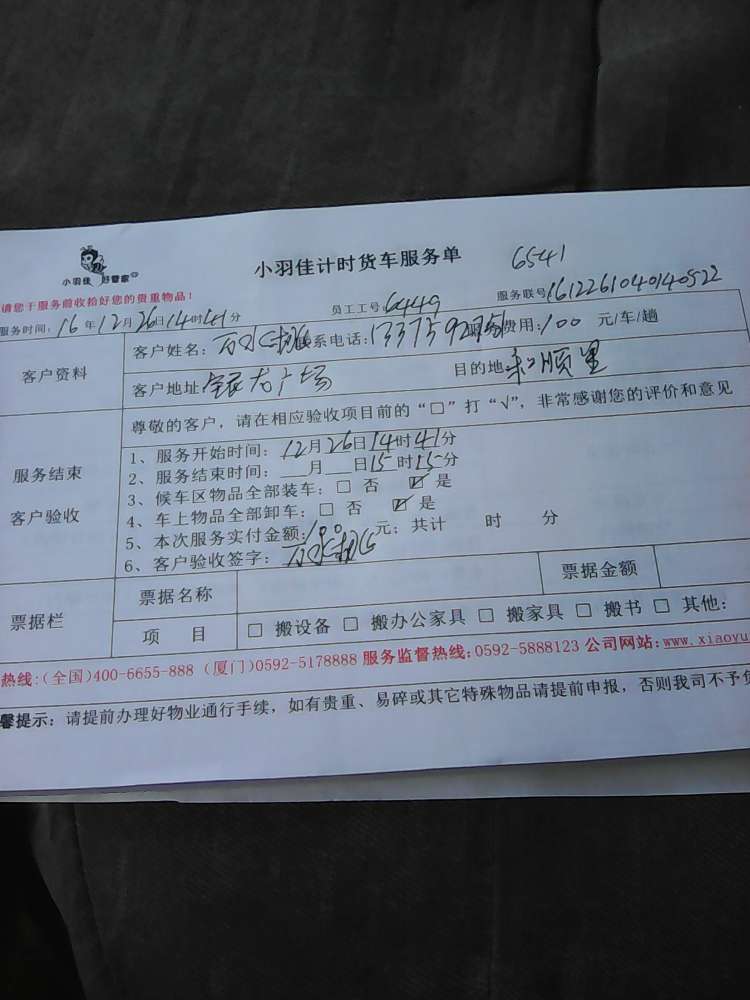 小羽佳 好管家
小羽佳计时货车服务单 6541
请您于服务前收拾好您的贵重物品！
服务时间：16年12月26日14时41分 员工工号：6449 服务联号：1612261040140522
客户资料
客户姓名： 联系电话：133759 费用：100 元/车/趟
客户地址 银龙广场 目的地 和顺里
服务结束
客户验收
尊敬的客户，请在相应验收项目前的“□”打“√”，非常感谢您的评价和意见
1、服务开始时间：12月26日14时41分
2、服务结束时间：___月___日15时15分
3、候车区物品全部装车：□ 否 ☑ 是
4、车上物品全部卸车：□ 否 ☑ 是
5、本次服务实付金额：100元；共计 时 分
6、客户验收签字：
票据栏
票据名称 票据金额
项 目 □ 搬设备 □ 搬办公家具 □ 搬家具 □ 搬书 □ 其他：
热线：(全国)400-6655-888 (厦门)0592-5178888 服务监督热线：0592-5888123 公司网站：www.xiaoyu
馨提示：请提前办理好物业通行手续，如有贵重、易碎或其它特殊物品请提前申报，否则我司不予